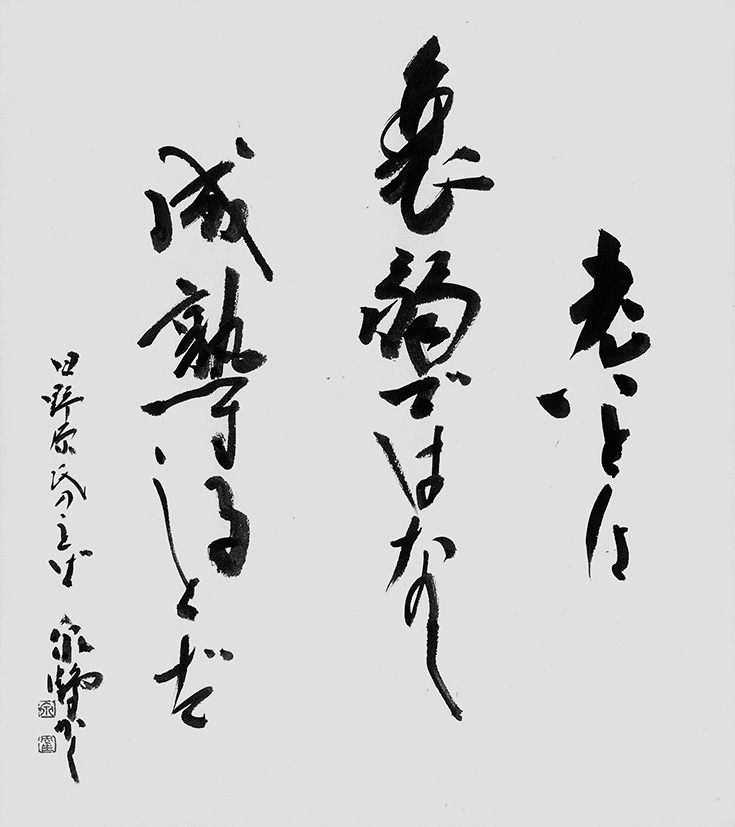 老いとは
衰弱ではなく
成熟することだ
日野原氏のことば